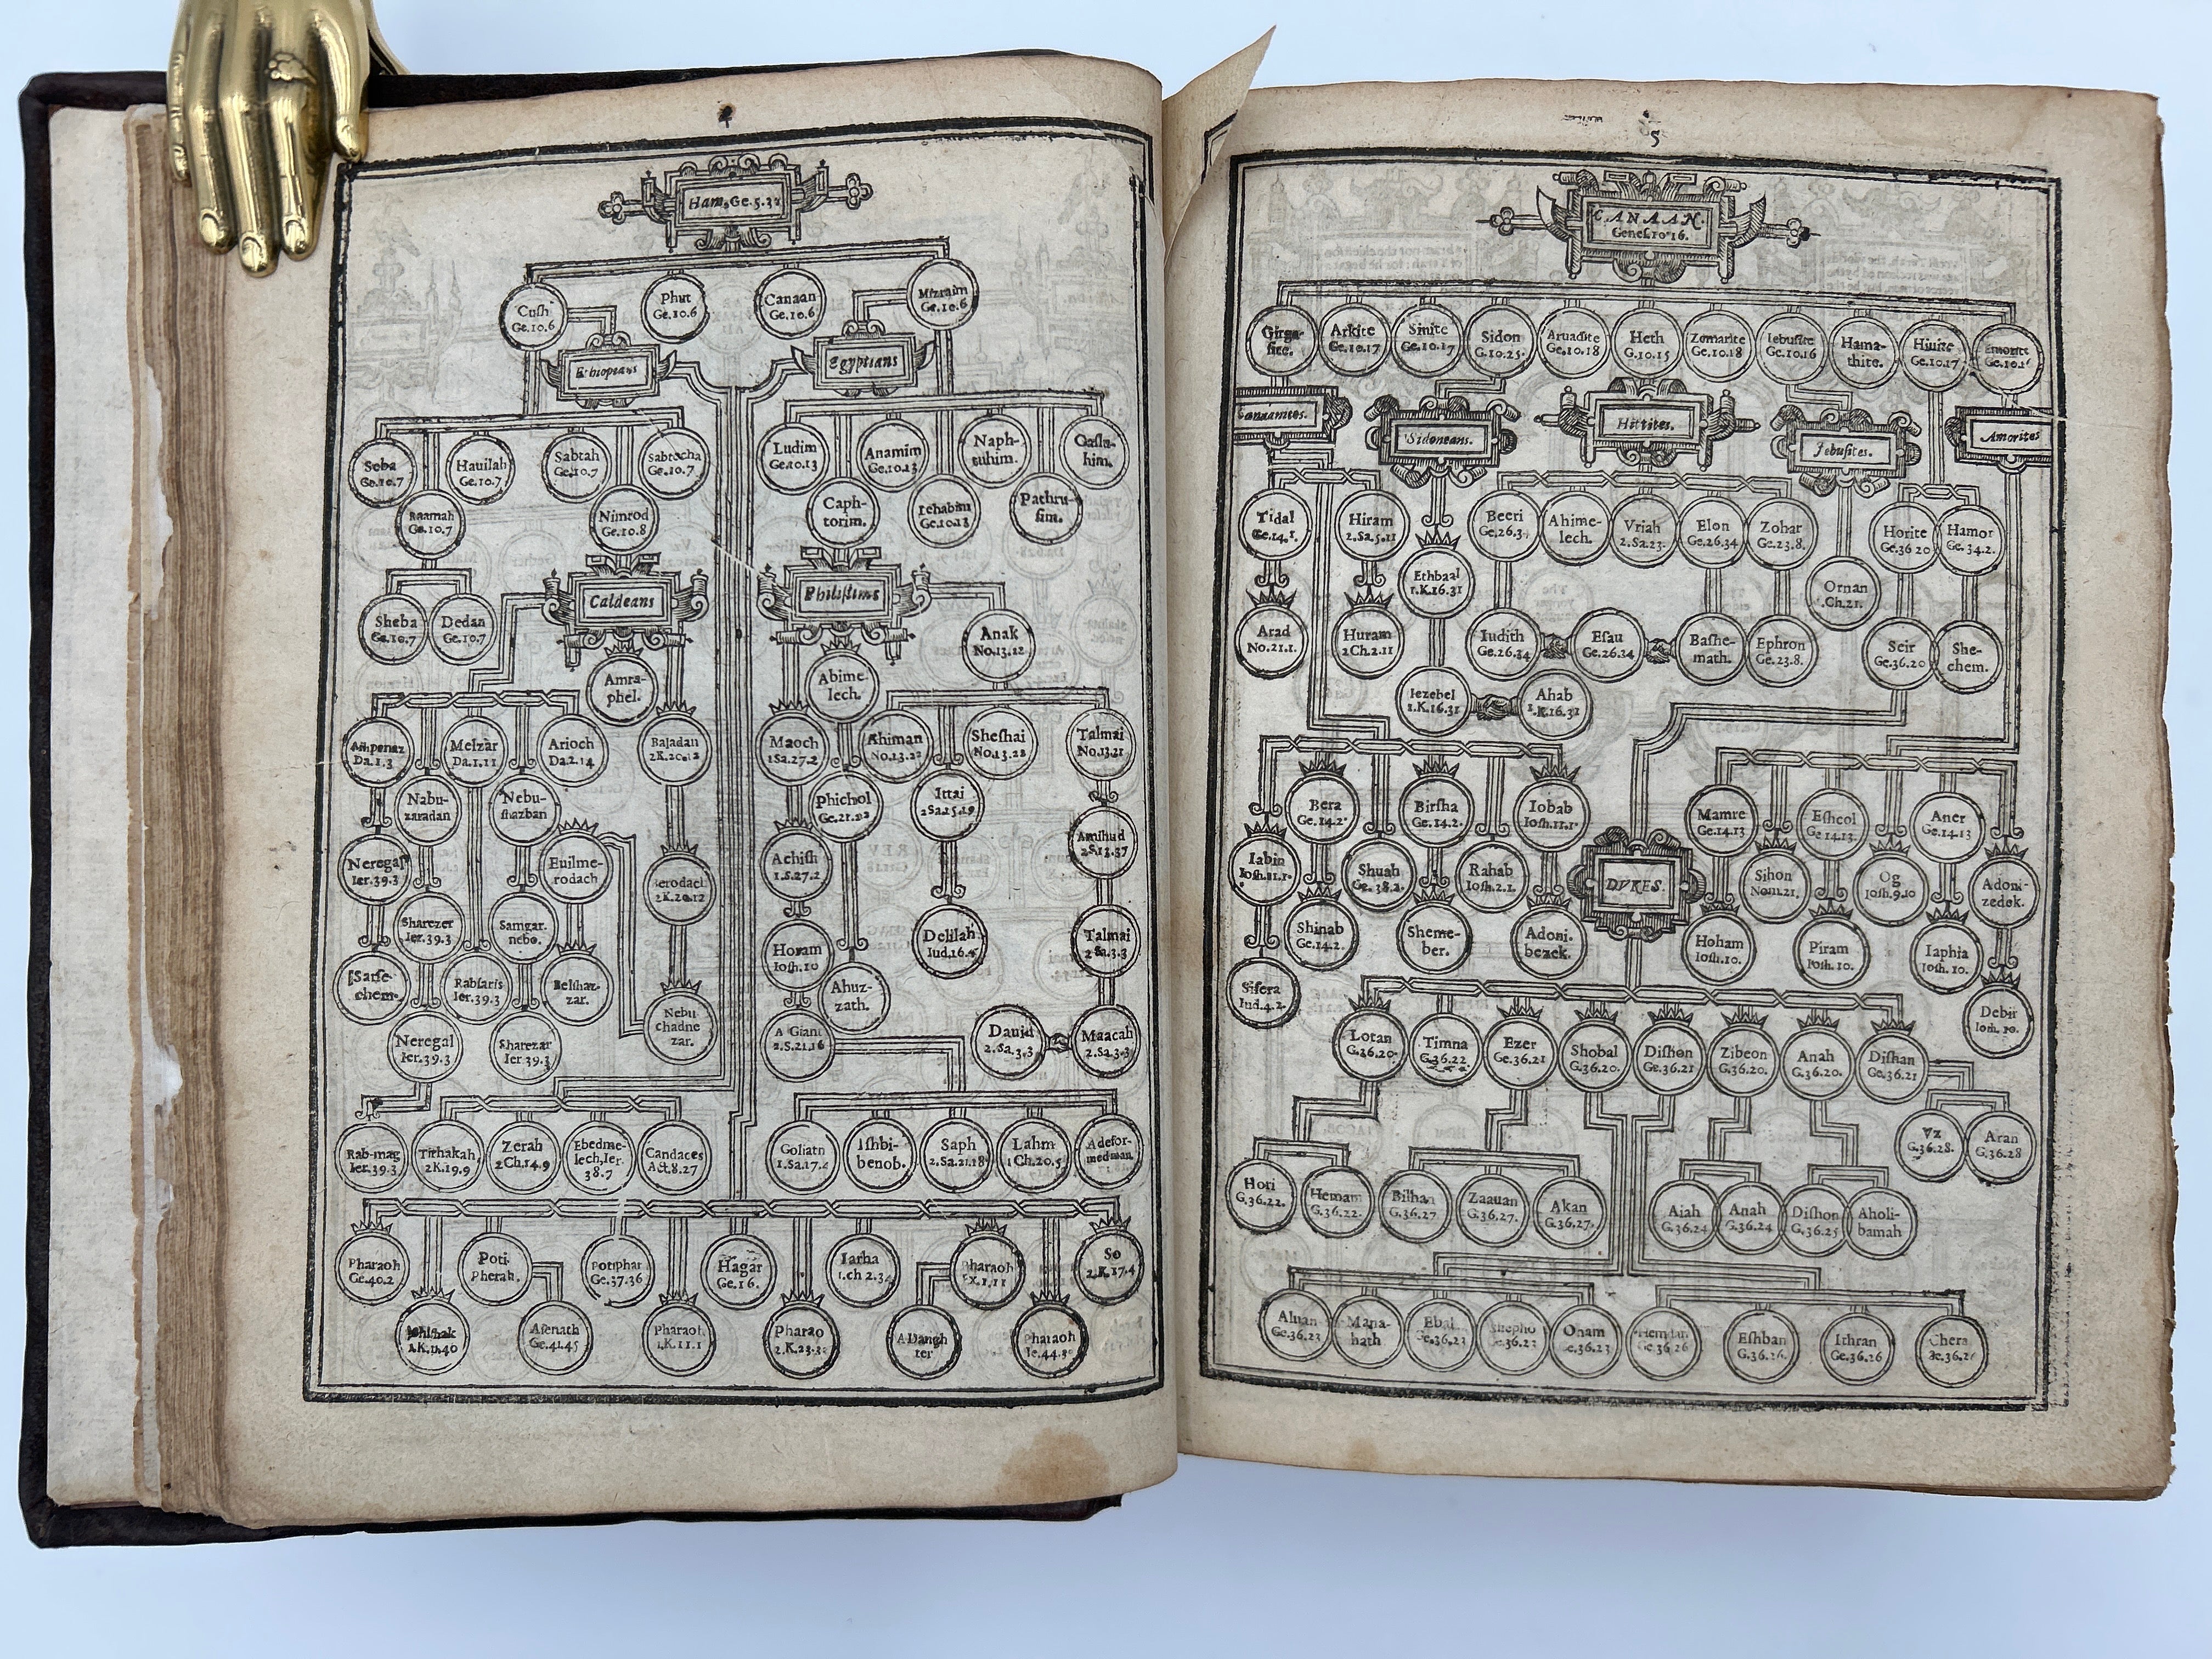 4
Ham, Ge. 5.32
Cuſh
Ge.10.6
Phut
Ge.10.6
Canaan
Ge.10.6
Mizraim
Ge.10.6
Ethiopeans
Egyptians
Seba
Ge.10.7
Hauilah
Ge.10.7
Sabtah
Ge.10.7
Sabtecha
Ge.10.7
Raamah
Ge.10.7
Nimrod
Ge.10.8
Ludim
Ge.10.13
Anamim
Ge.10.13
Naph-
tuhim.
Caſlu-
him.
Caph-
torim.
Lehabim
Ge.10.13
Pathru-
ſim.
Caldeans
Philiſtims
Sheba
Ge.10.7
Dedan
Ge.10.7
Anak
No.13.22
Amra-
phel.
Abime
lech.
Aſhpenaz
Da.1.3
Melzar
Da.1.11
Arioch
Da.2.14
Baladan
2K.20.12
Maoch
1Sa.27.2
Ahiman
No.13.22
Sheſhai
No.13.22
Talmai
No.13.21
Nabu-
zaradan
Nebu-
ſhazban
Phichol
Ge.21.22
Ittai
2Sa.15.19
Amihud
2S.13.37
Neregal
Ier.39.3
Euilme-
rodach
Berodach
2K.20.12
Achiſh
1.S.27.2
Sharezer
Ier.39.3
Samgar.
nebo.
Delilah
Iud.16.4
Talmai
2Sa.3.3
Horam
Ioſh.10
Sarſe-
chem.
Rabſaris
Ier.39.3
Belſhaz-
zar.
Ahuz-
zath.
Nebu
chadne
zar.
Neregal
Ier.39.3
Sharezar
Ier.39.3
A Giant
2.S.21.16
Dauid
2.Sa.3.3
Maacah
2.Sa.3.3
Rab-mag
Ier.39.3
Tirhakah
2K.19.9
Zerah
2Ch.14.9
Ebedme-
lech, Ier.
38.7
Candaces
Act.8.27
Goliath
1.Sa.17.4
Iſhbi-
benob.
Saph
2.Sa.21.18
Lahmi
1Ch.20.5
A defor-
med man
Pharaoh
Ge.40.2
Poti-
Pherah.
Potiphar
Ge.37.36
Hagar
Ge.16.
Iarha
1.ch 2.34
Pharaoh
Ex.1.11
So
2.K.17.4
Shiſhak
1.K.11.40
Aſenath
Ge.41.45
Pharaoh
1.K.11.1
Pharao
2.K.23.3
A Daugh
ter
Pharaoh
Ie.44.30
5
CANAAN.
Geneſ.10.16.
Girga-
ſite.
Arkite
Ge.10.17
Sinite
Ge.10.17
Sidon
G.10.25.
Aruadite
Ge.10.18
Heth
G.10.15
Zemarite
Ge.10.18
Iebuſite
Ge.10.16
Hama-
thite.
Hiuite
Ge.10.17
Emorite
Ge.10.16
Canaanites.
Sidoneans.
Hittites.
Jebuſites.
Amorites
Tidal
Ge.14.1.
Hiram
2.Sa.5.11
Beeri
Ge.26.34
Ahime-
lech.
Vriah
2.Sa.23.
Elon
Ge.26.34
Zohar
Ge.23.8.
Horite
Ge.36 20
Hamor
Ge.34.2.
Ethbaal
1.K.16.31
Ornan
1.Ch.21.
Arad
No.21.1.
Huram
2Ch.2.11
Iudith
Ge.26.34
Eſau
Ge.26.34
Baſhe-
math.
Ephron
Ge.23.8.
Seir
Ge.36.20
She-
chem.
Iezebel
1.K.16.31
Ahab
1.K.16.31
Bera
Ge.14.2.
Birſha
Ge.14.2.
Iobab
Ioſh.11.1.
Mamre
Ge.14.13
Eſhcol
Ge 14.13.
Aner
Ge.14.13
Iabin
Ioſh.11.1.
Shuah
Ge.38.2.
Rahab
Ioſh.2.1.
DVKES.
Sihon
Nom.21.
Og
Ioſh.9.10
Adoni-
zedek.
Shinab
Ge.14.2.
Sheme-
ber.
Adoni.
bezek.
Hoham
Ioſh.10.
Piram
Ioſh.10.
Iaphia
Ioſh.10.
Siſera
Iud.4.2.
Debir
Ioſh.10.
Lotan
G.36.20.
Timna
G.36.22
Ezer
Ge.36.21
Shobal
G.36.20.
Diſhon
Ge.36.21
Zibeon
G.36.20.
Anah
G.36.20.
Diſhan
Ge.36.21
Vz
G.36.28.
Aran
G.36.28
Hori
G.36.22.
Hemam
G.36.22.
Bilhan
G.36.27
Zaauan
G.36.27.
Akan
G.36.27.
Aiah
G.36.24
Anah
G.36.24
Diſhon
G.36.25
Aholi-
bamah
Aluan
Ge.36.23
Mana-
hath
Ebal
Ge.36.23
Shepho
Ge.36.23
Onam
Ge.36.23
Hemdan
Ge.36 26
Eſhban
G.36.26.
Ithran
Ge.36.26
Chera
Ge.36.26